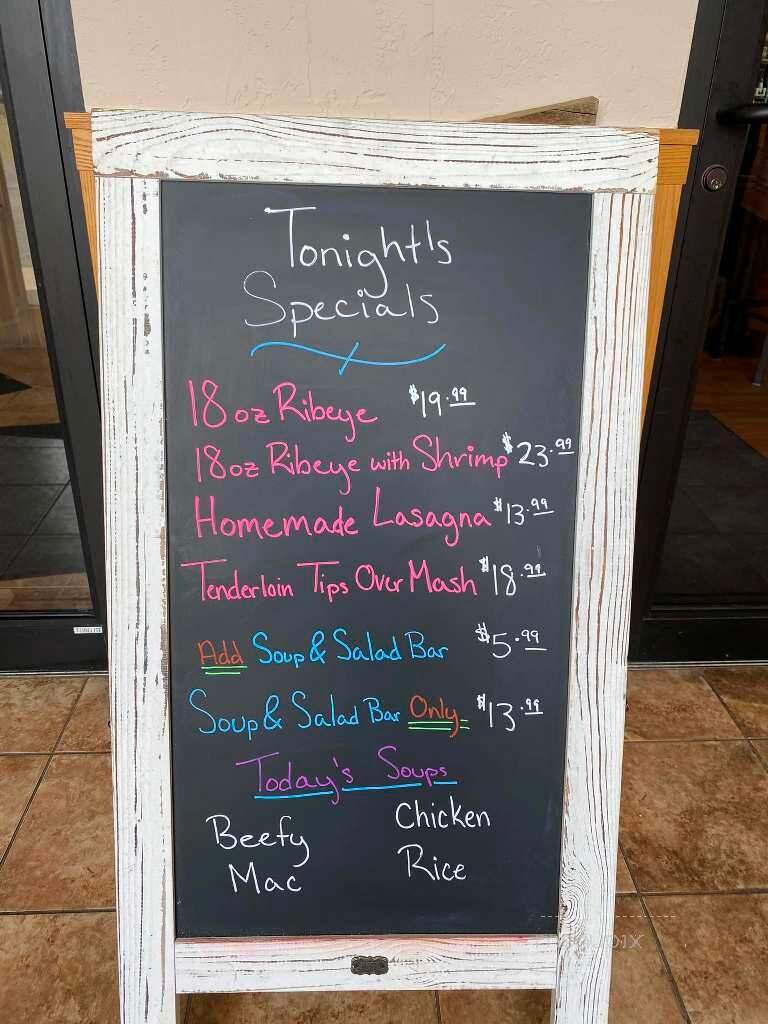 Tonight's
Specials
18oz Ribeye $19.99
18oz Ribeye with Shrimp $23.99
Homemade Lasagna $13.99
Tenderloin Tips Over Mash $18.99
Add Soup & Salad Bar $5.99
Soup & Salad Bar Only $13.99
Today's Soups
Beefy Chicken
Mac Rice